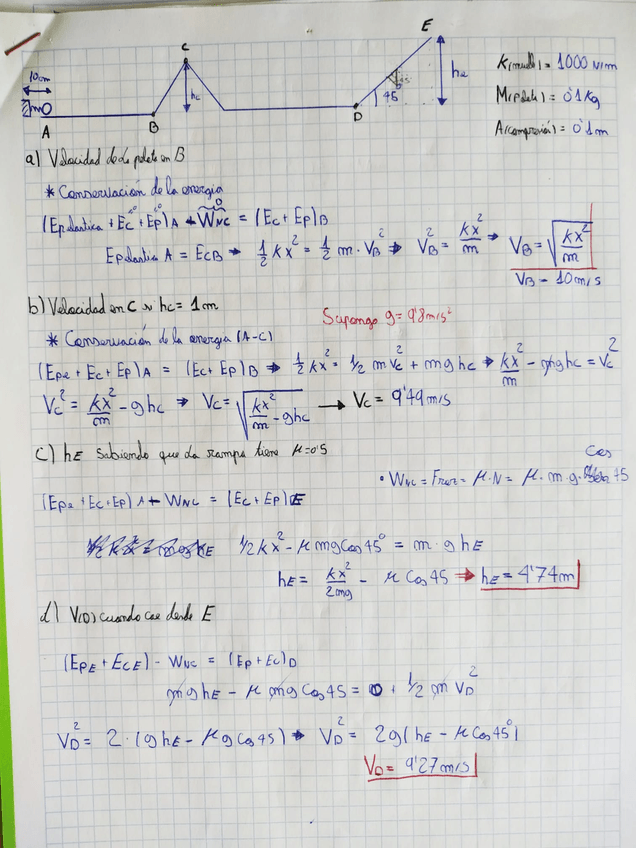 E
C
10cm
hc
45
hE
K(muelle) = 1000 N/m
M(pelota) = 0'1 Kg
A(compresión) = 0'1 m
m
A
B
D
a) Velocidad de la pelota en B
* Conservación de la energía
(Epelastica + Ec + Ep)A + WNC = (Ec + Ep)B
0 0 0
Epelastica A = EcB → 1/2 kx² = 1/2 m · VB² → VB² = kx²/m → VB = √(kx²/m)
VB = 10 m/s
b) Velocidad en C si hc = 1 cm
Supongo g = 9'8 m/s²
* Conservación de la energía (A-C)
(Epe + Ec + Ep)A = (Ec + Ep)B → 1/2 kx² = 1/2 m Vc² + m g hc → kx²/m - mghc = Vc²
Vc² = kx²/m - ghc → Vc = √(kx²/m - ghc) → Vc = 9'49 m/s
c) hE Sabiendo que la rampa tiene μ=0'5
Cos
· WNC = Froz = μ·N = μ· m·g· 45
(Epe + Ec + Ep)A + WNC = (Ec + Ep)E
1/2 kx² - μ mg Cos 45° = m · g hE
hE = kx²/2mg - μ Cos 45 → hE = 4'74 m
d) V(D) cuando cae desde E
(EpE + EcE) - WNC = (Ep + Ec)D
mg hE - μ mg Cos 45 = 0 + 1/2 m VD²
VD² = 2 · (g hE - μ g Cos 45) → VD² = 2g( hE - μ Cos 45°)
VD = 9'27 m/s